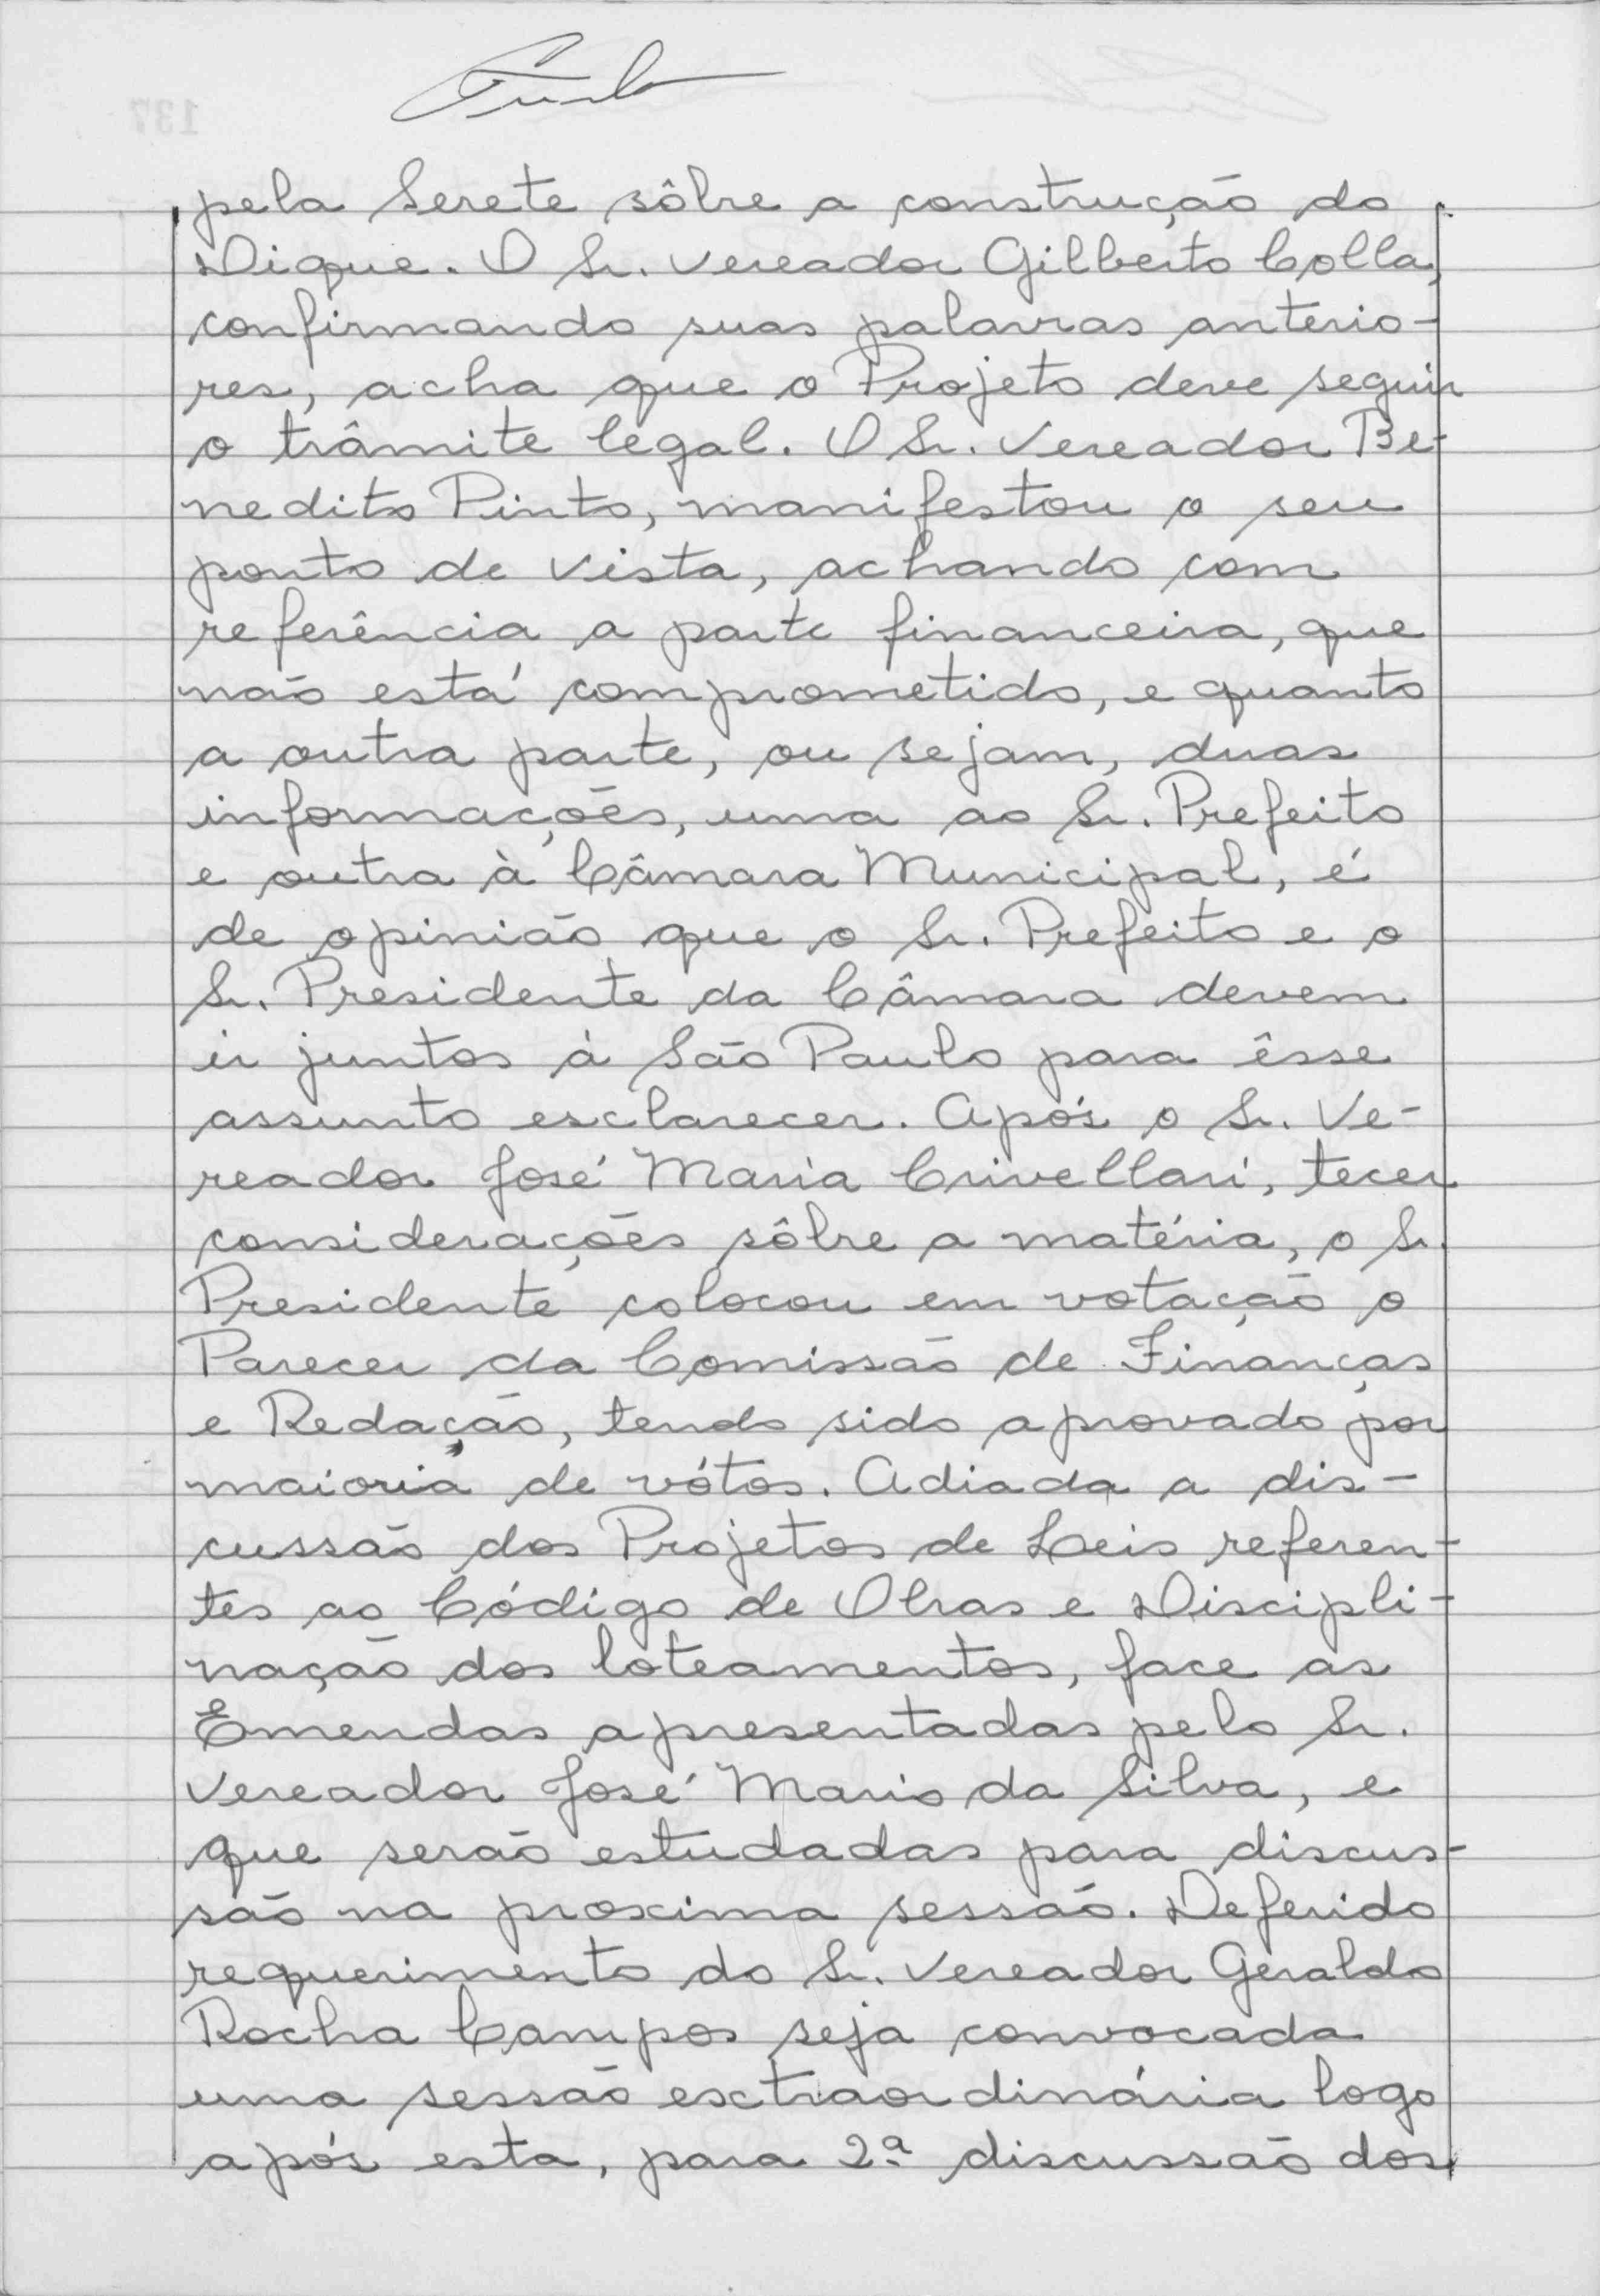 pela Serete sôbre a construção do
Dique. O Sr. Vereador Gilberto Colla,
confirmando suas palavras anterio-
res, acha que o Projeto deve seguir
o trâmite legal. O Sr. Vereador Be-
nedito Pinto, manifestou o seu
ponto de vista, achando com
referência a parte financeira, que
não está comprometido, e quanto
a outra parte, ou sejam, duas
informações, uma ao Sr. Prefeito
e outra à Câmara Municipal, é
de opinião que o Sr. Prefeito e o
Sr. Presidente da Câmara devem
ir juntos à São Paulo para êsse
assunto esclarecer. Após o Sr. Ve-
reador José Maria Crivellari, tecer
considerações sôbre a matéria, o Sr.
Presidente colocou em votação o
Parecer da Comissão de Finanças
e Redação, tendo sido aprovado por
maioria de vótos. Adiada a dis-
cussão dos Projetos de Leis referen-
tes ao Código de Obras e Discipli-
nação dos loteamentos, face as
Emendas apresentadas pelo Sr.
Vereador José Mario da Silva, e
que serão estudadas para discus-
são na proxima sessão. Deferido
requerimento do Sr. Vereador Geraldo
Rocha Campos seja convocada
uma sessão extraordinária logo
após esta, para 2ª discussão dos